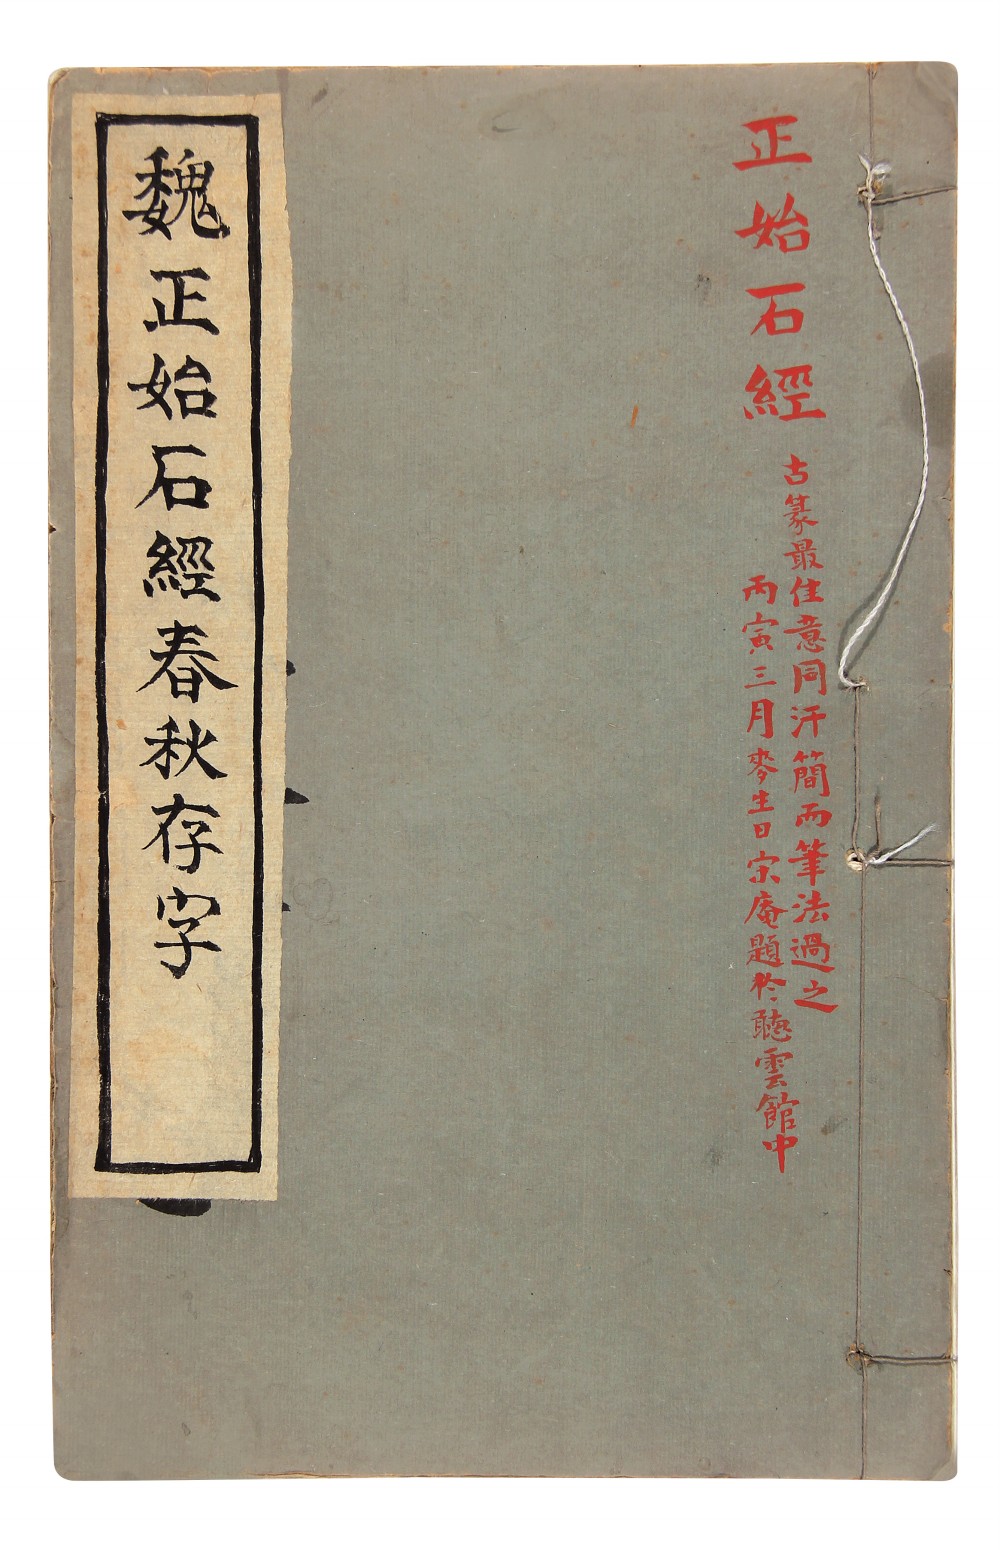 正始石經
古篆最佳意同汗簡而筆法過之
丙寅三月麥生日宗庵題於聽雲館中
魏正始石經春秋存字